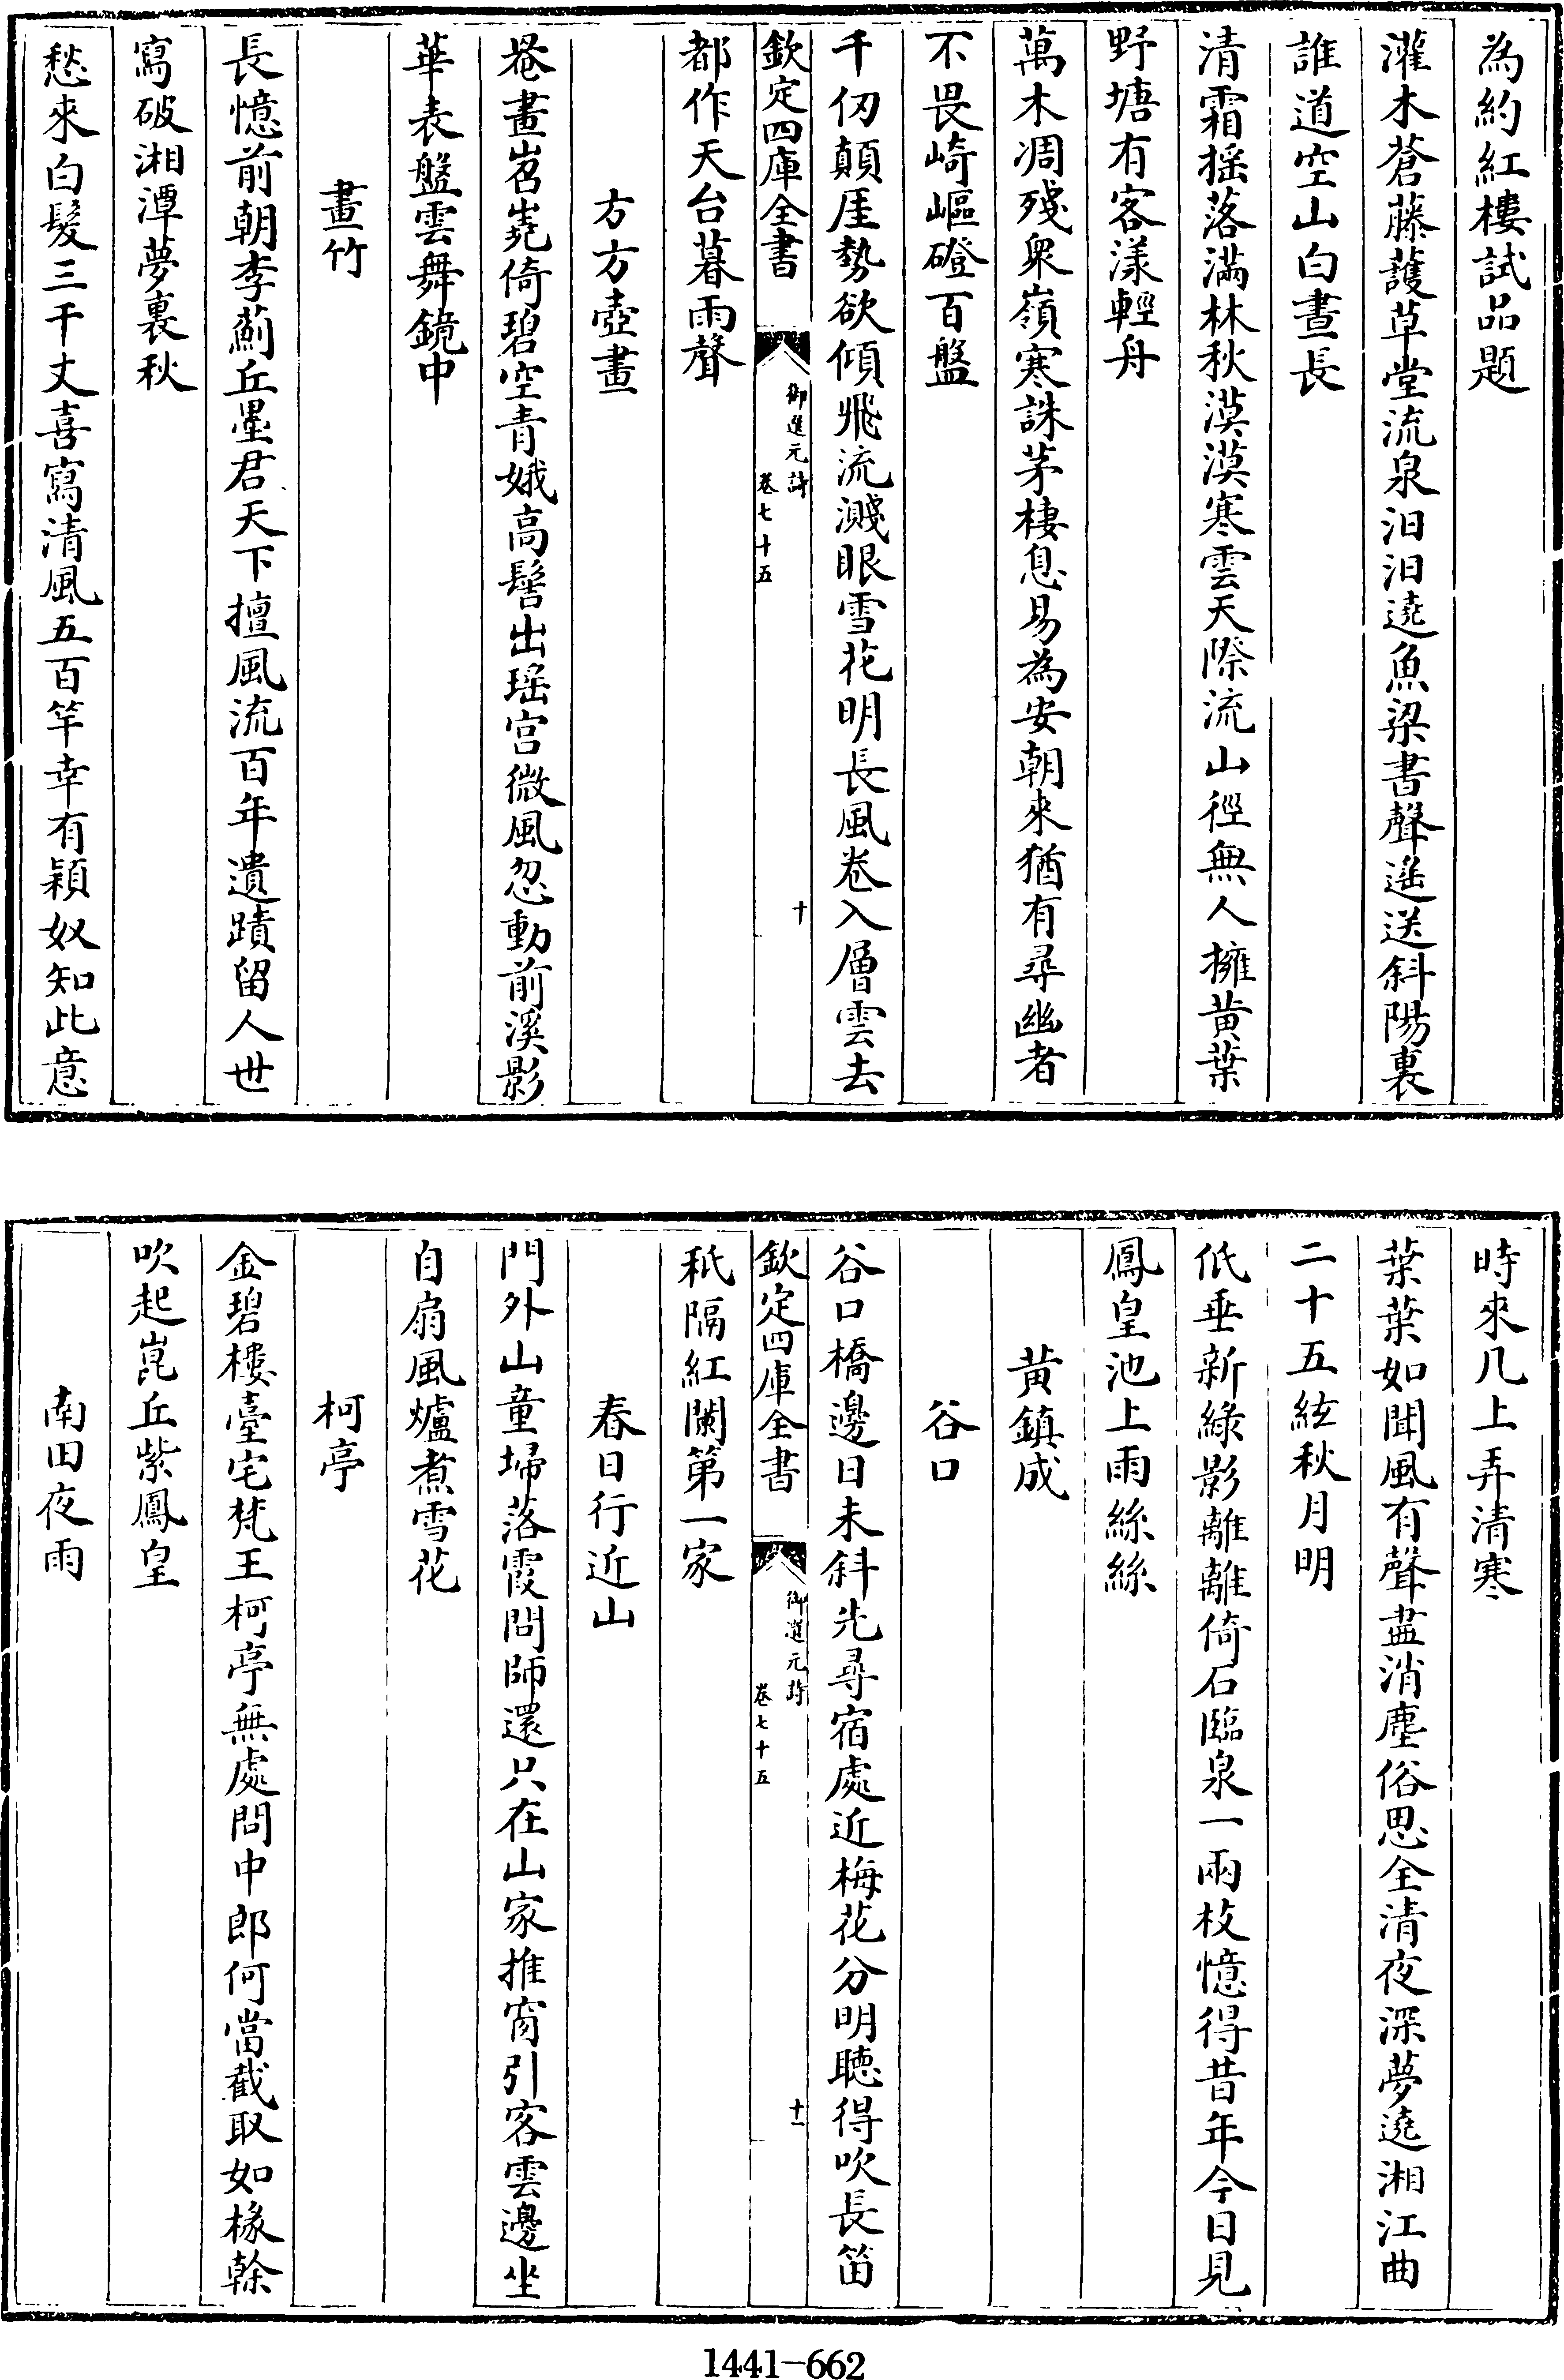 為約紅樓試品題
灌木蒼藤䕶草堂流泉汩汩遶魚梁書聲遥送斜陽裏
誰道空山白晝長
清霜揺落滿林秋漠漠寒雲天際流山徑無人擁黄葉
野塘有客漾輕舟
萬木凋殘衆嶺寒誅茅棲息易為安朝來猶有尋幽者
不畏崎嶇磴百盤
千仞顛厓勢欲傾飛流濺眼雪花明長風卷入層雲去
欽定四庫全書
御選元詩
卷七十五
十
都作天台暮雨聲
方方壺畫
巻畫岧嶤倚碧空青娥高髻出瑶宫微風忽動前溪影
華表盤雲舞鏡中
畫竹
長憶前朝李薊丘墨君天下擅風流百年遺蹟留人世
寫破湘潭夢裏秋
愁來白髮三千丈喜寫清風五百竿幸有穎奴知此意
時來几上弄清寒
葉葉如聞風有聲盡消塵俗思全清夜深夢遶湘江曲
二十五絃秋月明
低垂新綠影離離倚石臨泉一兩枝憶得昔年今日見
鳳皇池上雨絲絲
黄鎮成
谷口
谷口橋邊日未斜先尋宿處近梅花分明聴得吹長笛
欽定四庫全書
御選元詩
卷七十五
十一
秖隔紅闌第一家
春日行近山
門外山童埽落霞問師還只在山家推窗引客雲邊坐
自扇風爐煮雪花
柯亭
金碧樓臺宅梵王柯亭無處問中郎何當截取如椽榦
吹起崑丘紫鳳皇
南田夜雨
1441-662